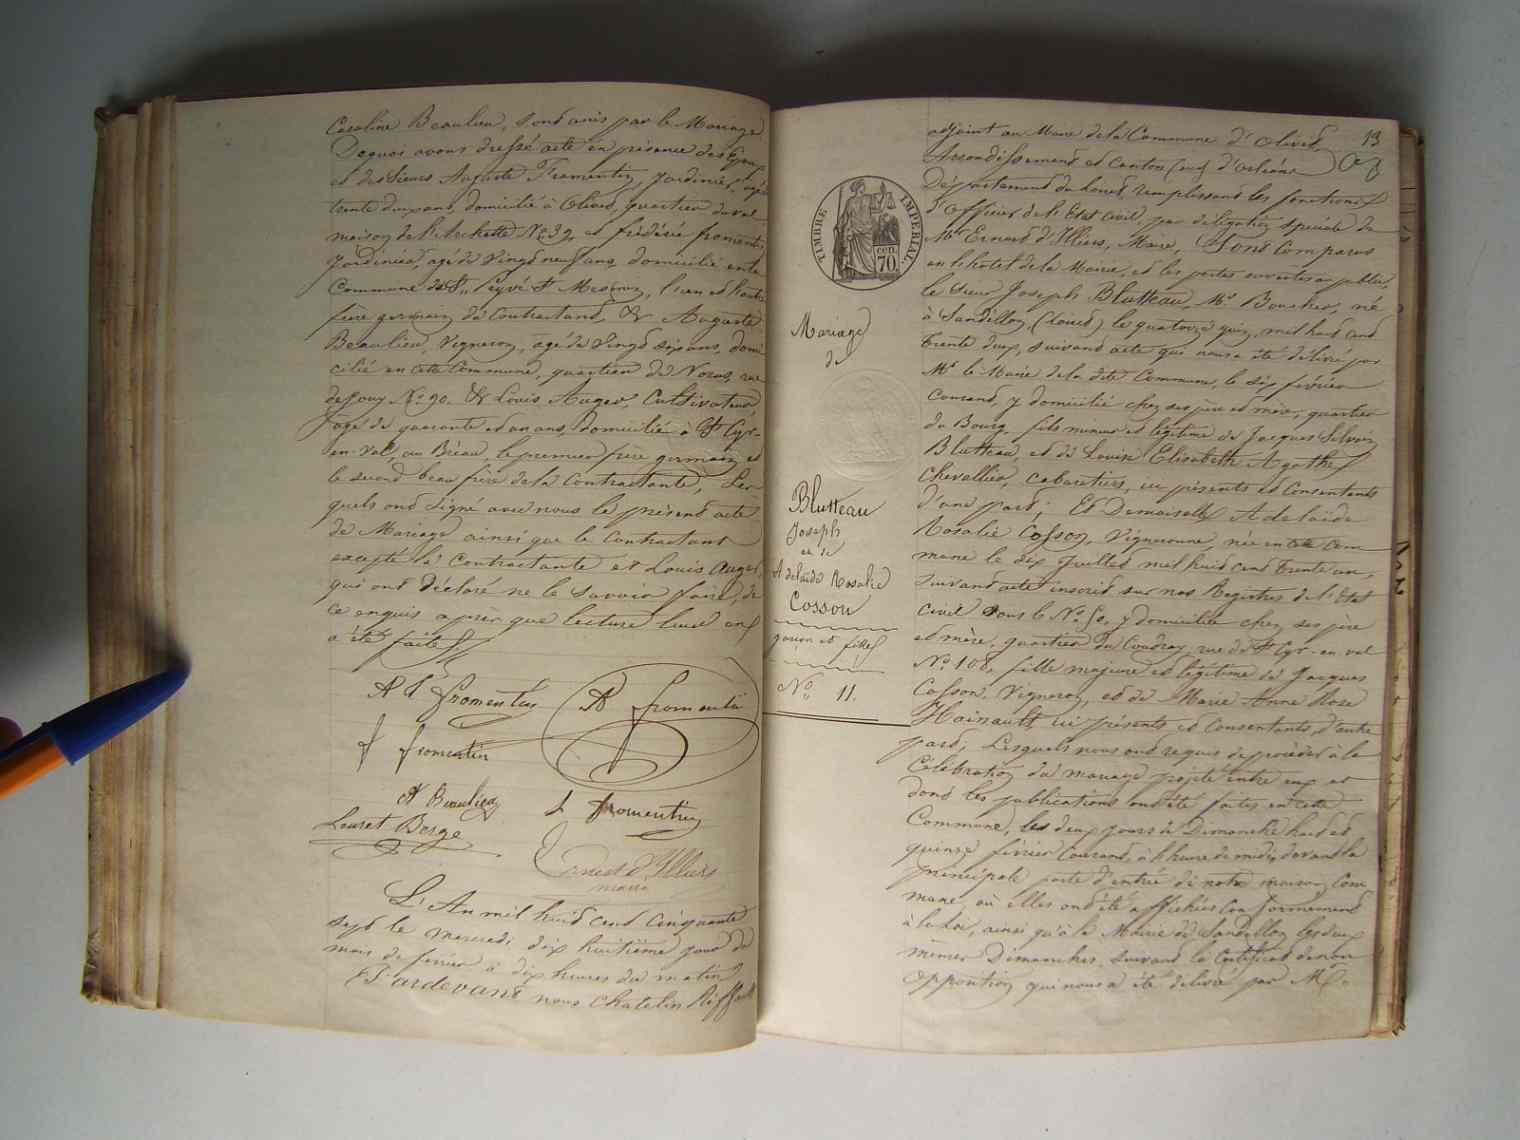 Caroline Beaulieu, sont unis par le Mariage
De quoi avons dressé acte en présence des Epoux
et des Sieurs Auguste Fromentin, Jardinier, agé
trente deux ans, domicilié à Olivet, quartier du val
maison de l'Archette No 39, et frédéric froment
Jardinier, agé de Vingt neuf ans, domicilié en la
Commune de St Pryvé St Mesmin, l'un et l'autre
frère germain du Contractant, & Auguste
Beaulieu, Vigneron, agé de Vingt six ans, domi
cilié en cette Commune, quartier de rue
de Jouy No 90. & Louis Auger, Cultivateur,
agé de quarante et un ans, domicilié à St Cyr-
en-Val, au Bréau, le premier frère germain et
le second beau frère de la Contractante, Les-
quels ont signé avec nous le présent acte
de Mariage ainsi que le Contractant
excepté la Contractante et Louis Auger,
qui ont déclaré ne le savoir faire, de
ce enquis après que lecture leur en
a été faite.
fromentin
fromentin
f fromentin
A Beaulieu
fromentin
Louret Borge
Ernest d'Illiers
maire
L'An mil huit cent cinquante
sept le mercredi dix huitième jour du
mois de février à dix heures du matin
Pardevant nous Chatelin
13
adjoint au Maire de la Commune d'Olivet,
Arrondissement et canton sud d'orléans
Département du Loiret, remplissant les fonctions
d'Officier de l'Etat civil par délégation spéciale de
Mr Ernest d'Illiers, Maire, Sont Comparus
en l'hotel de la Mairie, et les portes ouvertes au public,
le Sieur Joseph Blutteau, Boucher, né
à Sandillon (Loiret) le quatorze juin mil huit cent
trente deux, suivant acte qui nous a été délivré par
Mr le Maire de la dite Commune, le dix février
courant, y domicilié chez ses père et mère, quartier
du Bourg, fils mineur et légitime de Jacques Silvain
Blutteau, et de Louise Elisabeth Agathe
Chevallier, cabaretiers, ici présents et Consentants
d'une part; Et Demoiselle Adelaïde
Rosalie Cosson, Vigneronne, née en cette Com
mune le dix Juillet mil huit cent trente un,
suivant acte inscrit sur nos Registres de l'Etat
civil sous le No 50, y domiciliée chez ses père
et mère, quartier du Coudray, rue de St Cyr-en-val
No 108, fille majeure et légitime de Jacques
Cosson, Vigneron, et de Marie Anne Rose
Hainault, ici présents et Consentants, d'autre
part; Lesquels nous ont requis de procéder à la
Célébration du mariage projeté entre eux et
dont les publications ont été faites en cette
Commune, les deux jours de Dimanche huit et
quinze février Courant, à l'heure de midi, devant la
principale porte d'entrée de notre maison Com
mune, où elles ont été affichées Conformément
à la Loi, ainsi qu'à la Mairie de Sandillon les deux
mêmes Dimanches. Suivant le Certificat de non
Opposition qui nous a été délivré par Mr.
TIMBRE IMPERIAL
cen.
70.
Mariage
de
Blutteau
Joseph
et de
Adelaïde Rosalie
Cosson
garçon et fille
No 11.